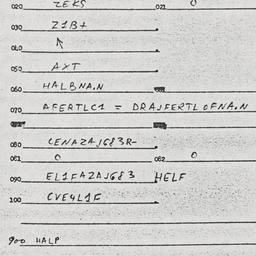 020 ZEKS 021 0
030 Z1B+
040
050 AXT
060 HALBNA.N
070 AFERTLC1 = DRAJFERTLOFNA.N
080 CENAZAJG83R-
081 0 082 0
090 EL1FAZAJG83 HELF
100 CVE4L1F
900 HALP